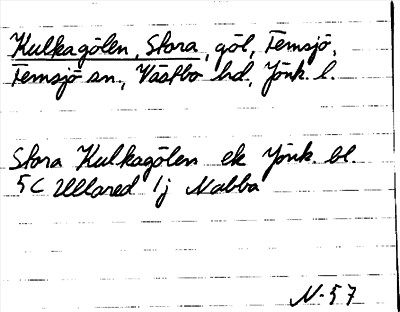 Kulkagölen, Stora, göl, Femsjö,
Femsjö sn., Västbo hd, Jönk. l.
Stora Kulkagölen ek Jönk. bl.
5C Ullared 1j Nabba
N-57